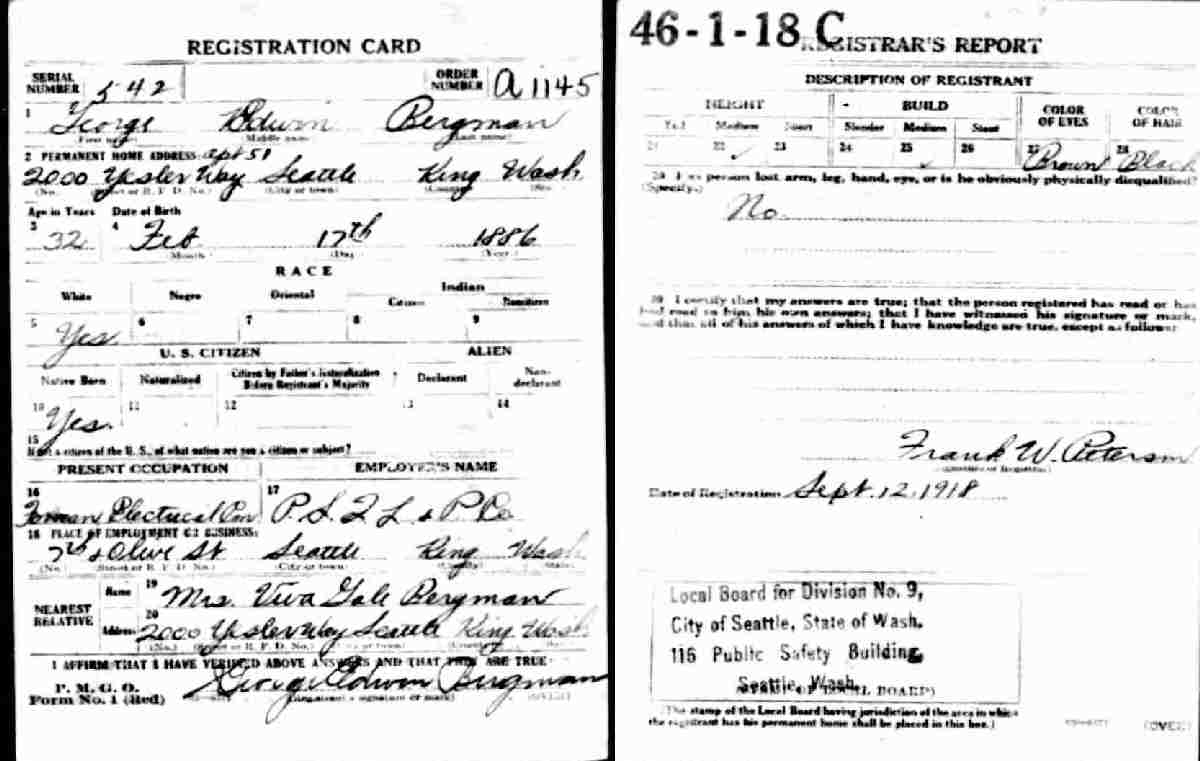 REGISTRATION CARD
SERIAL NUMBER 542 ORDER NUMBER A 1145
1 George Edwin Bergman
(First name) (Middle name) (Last name)
2 PERMANENT HOME ADDRESS: apt 51
2000 Yesler Way Seattle King Wash
(No.) (Street or R. F. D. No.) (City or town) (County) (State)
Age in Years Date of Birth
3 32 4 Feb 17th 1886
(Month) (Day) (Year)
RACE
White Negro Oriental Indian
Citizen
5 Yes 6 7 8 9
U. S. CITIZEN ALIEN
Native Born Naturalized Citizen by Father's Naturalization Before Registrant's Majority Declarant Non-declarant
10 Yes. 11 12 13 14
15 If not a citizen of the U. S., of what nation are you a citizen or subject?
PRESENT OCCUPATION EMPLOYER'S NAME
16 Electrical 17 P. S. T. L. & P. Co
18 PLACE OF EMPLOYMENT OR BUSINESS:
7th & Olive St Seattle King Wash
(No.) (Street or R. F. D. No.) (City or town) (County) (State)
NEAREST RELATIVE Name 19 Mrs. Viva Gale Bergman
Address 20 2000 Yesler Way Seattle King Wash
(No.) (Street or R. F. D. No.) (City or town) (County) (State)
I AFFIRM THAT I HAVE VERIFIED ABOVE ANSWERS AND THAT THEY ARE TRUE
P. M. G. O.
Form No. 1 (Red) George Edwin Bergman
(Registrant's signature or mark) (OVER)
46-1-18 C
REGISTRAR'S REPORT
DESCRIPTION OF REGISTRANT
HEIGHT BUILD COLOR OF EYES COLOR OF HAIR
Tall Medium Short Slender Medium Stout
21 22 ✓ 23 24 25 ✓ 26 27 Brown 28 Black
29 Has person lost arm, leg, hand, eye, or is he obviously physically disqualified?
(Specify.)
No.
30 I certify that my answers are true; that the person registered has read or has
had read to him his own answers; that I have witnessed his signature or mark,
and that all of his answers of which I have knowledge are true, except as follows:
Frank W. Peterson
(Signature of Registrar)
Date of Registration Sept. 12, 1918
Local Board for Division No. 9,
City of Seattle, State of Wash.
116 Public Safety Building,
Seattle, Wash.
(STAMP OF LOCAL BOARD)
(The stamp of the Local Board having jurisdiction of the area in which
the registrant has his permanent home shall be placed in this box.)
(OVER)